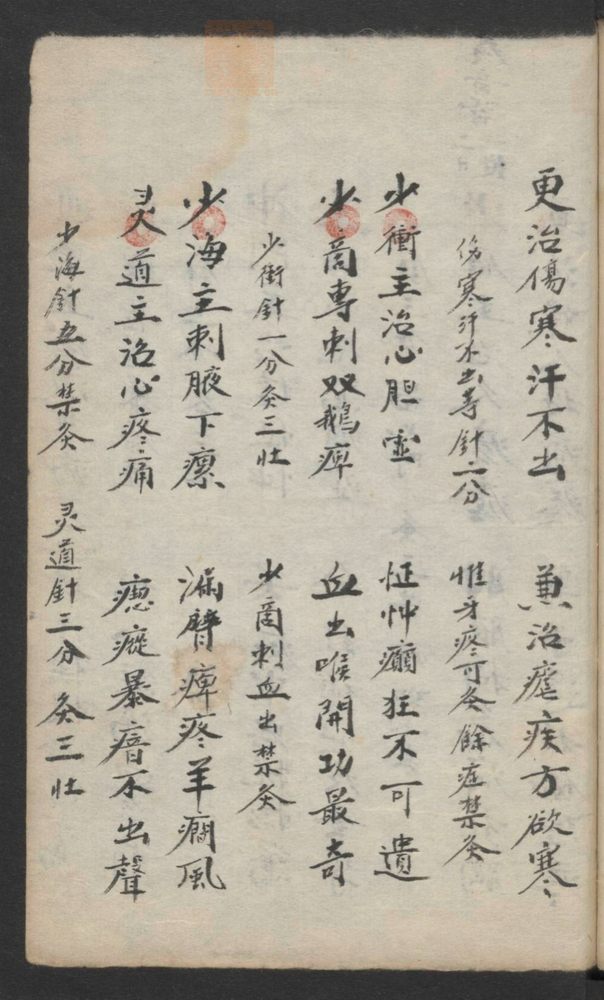 更治傷寒汗不出　兼治瘧疾方欲寒
傷寒汗不出等針二分　惟牙疼可灸餘症禁灸
少衝主治心胆虚　怔忡癲狂不可遺
少商專刺双鵝痺　血出喉開功最奇
少衝針一分灸三壮　少商刺血出禁灸
少海主刺腋下瘰　漏臂痺疼羊癎風
灵道主治心疼痛　瘛瘲暴瘖不出聲
少海針五分禁灸　灵道針三分　灸三壮